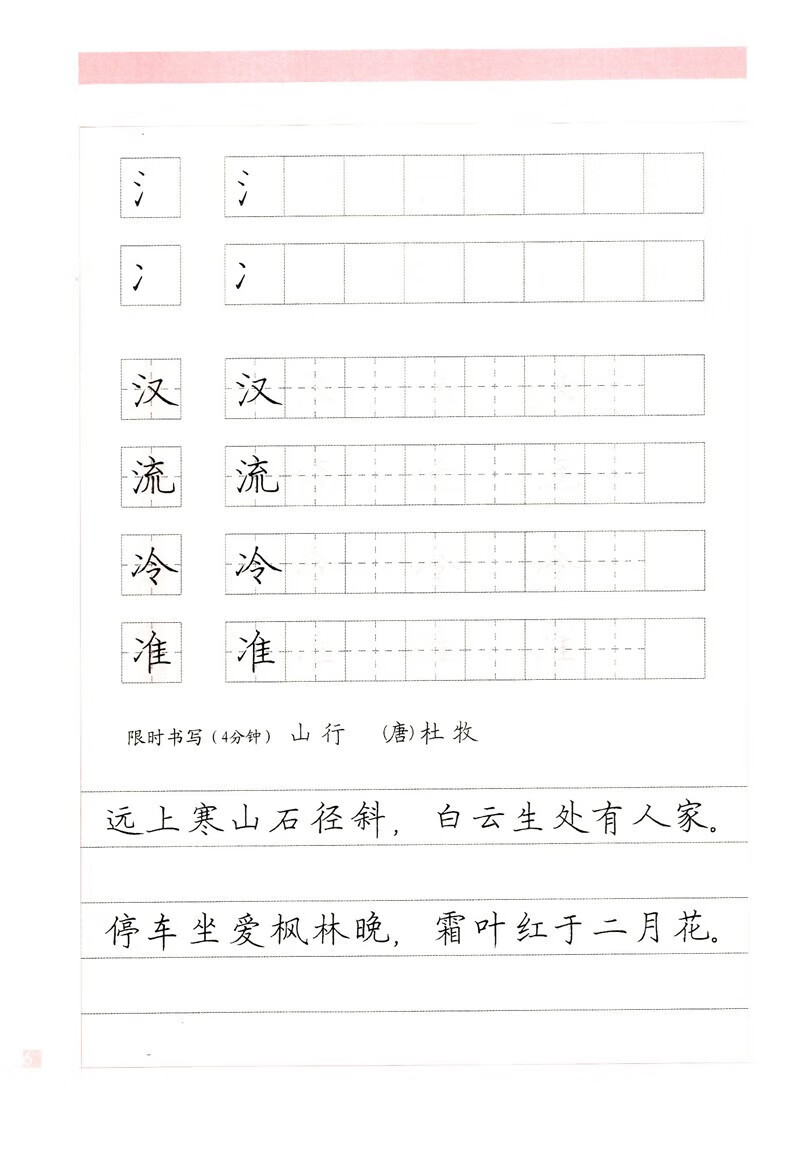 氵 氵
冫 冫
汉 汉
流 流
冷 冷
准 准
限时书写(4分钟) 山行 (唐)杜牧
远上寒山石径斜,白云生处有人家。
停车坐爱枫林晚,霜叶红于二月花。
6